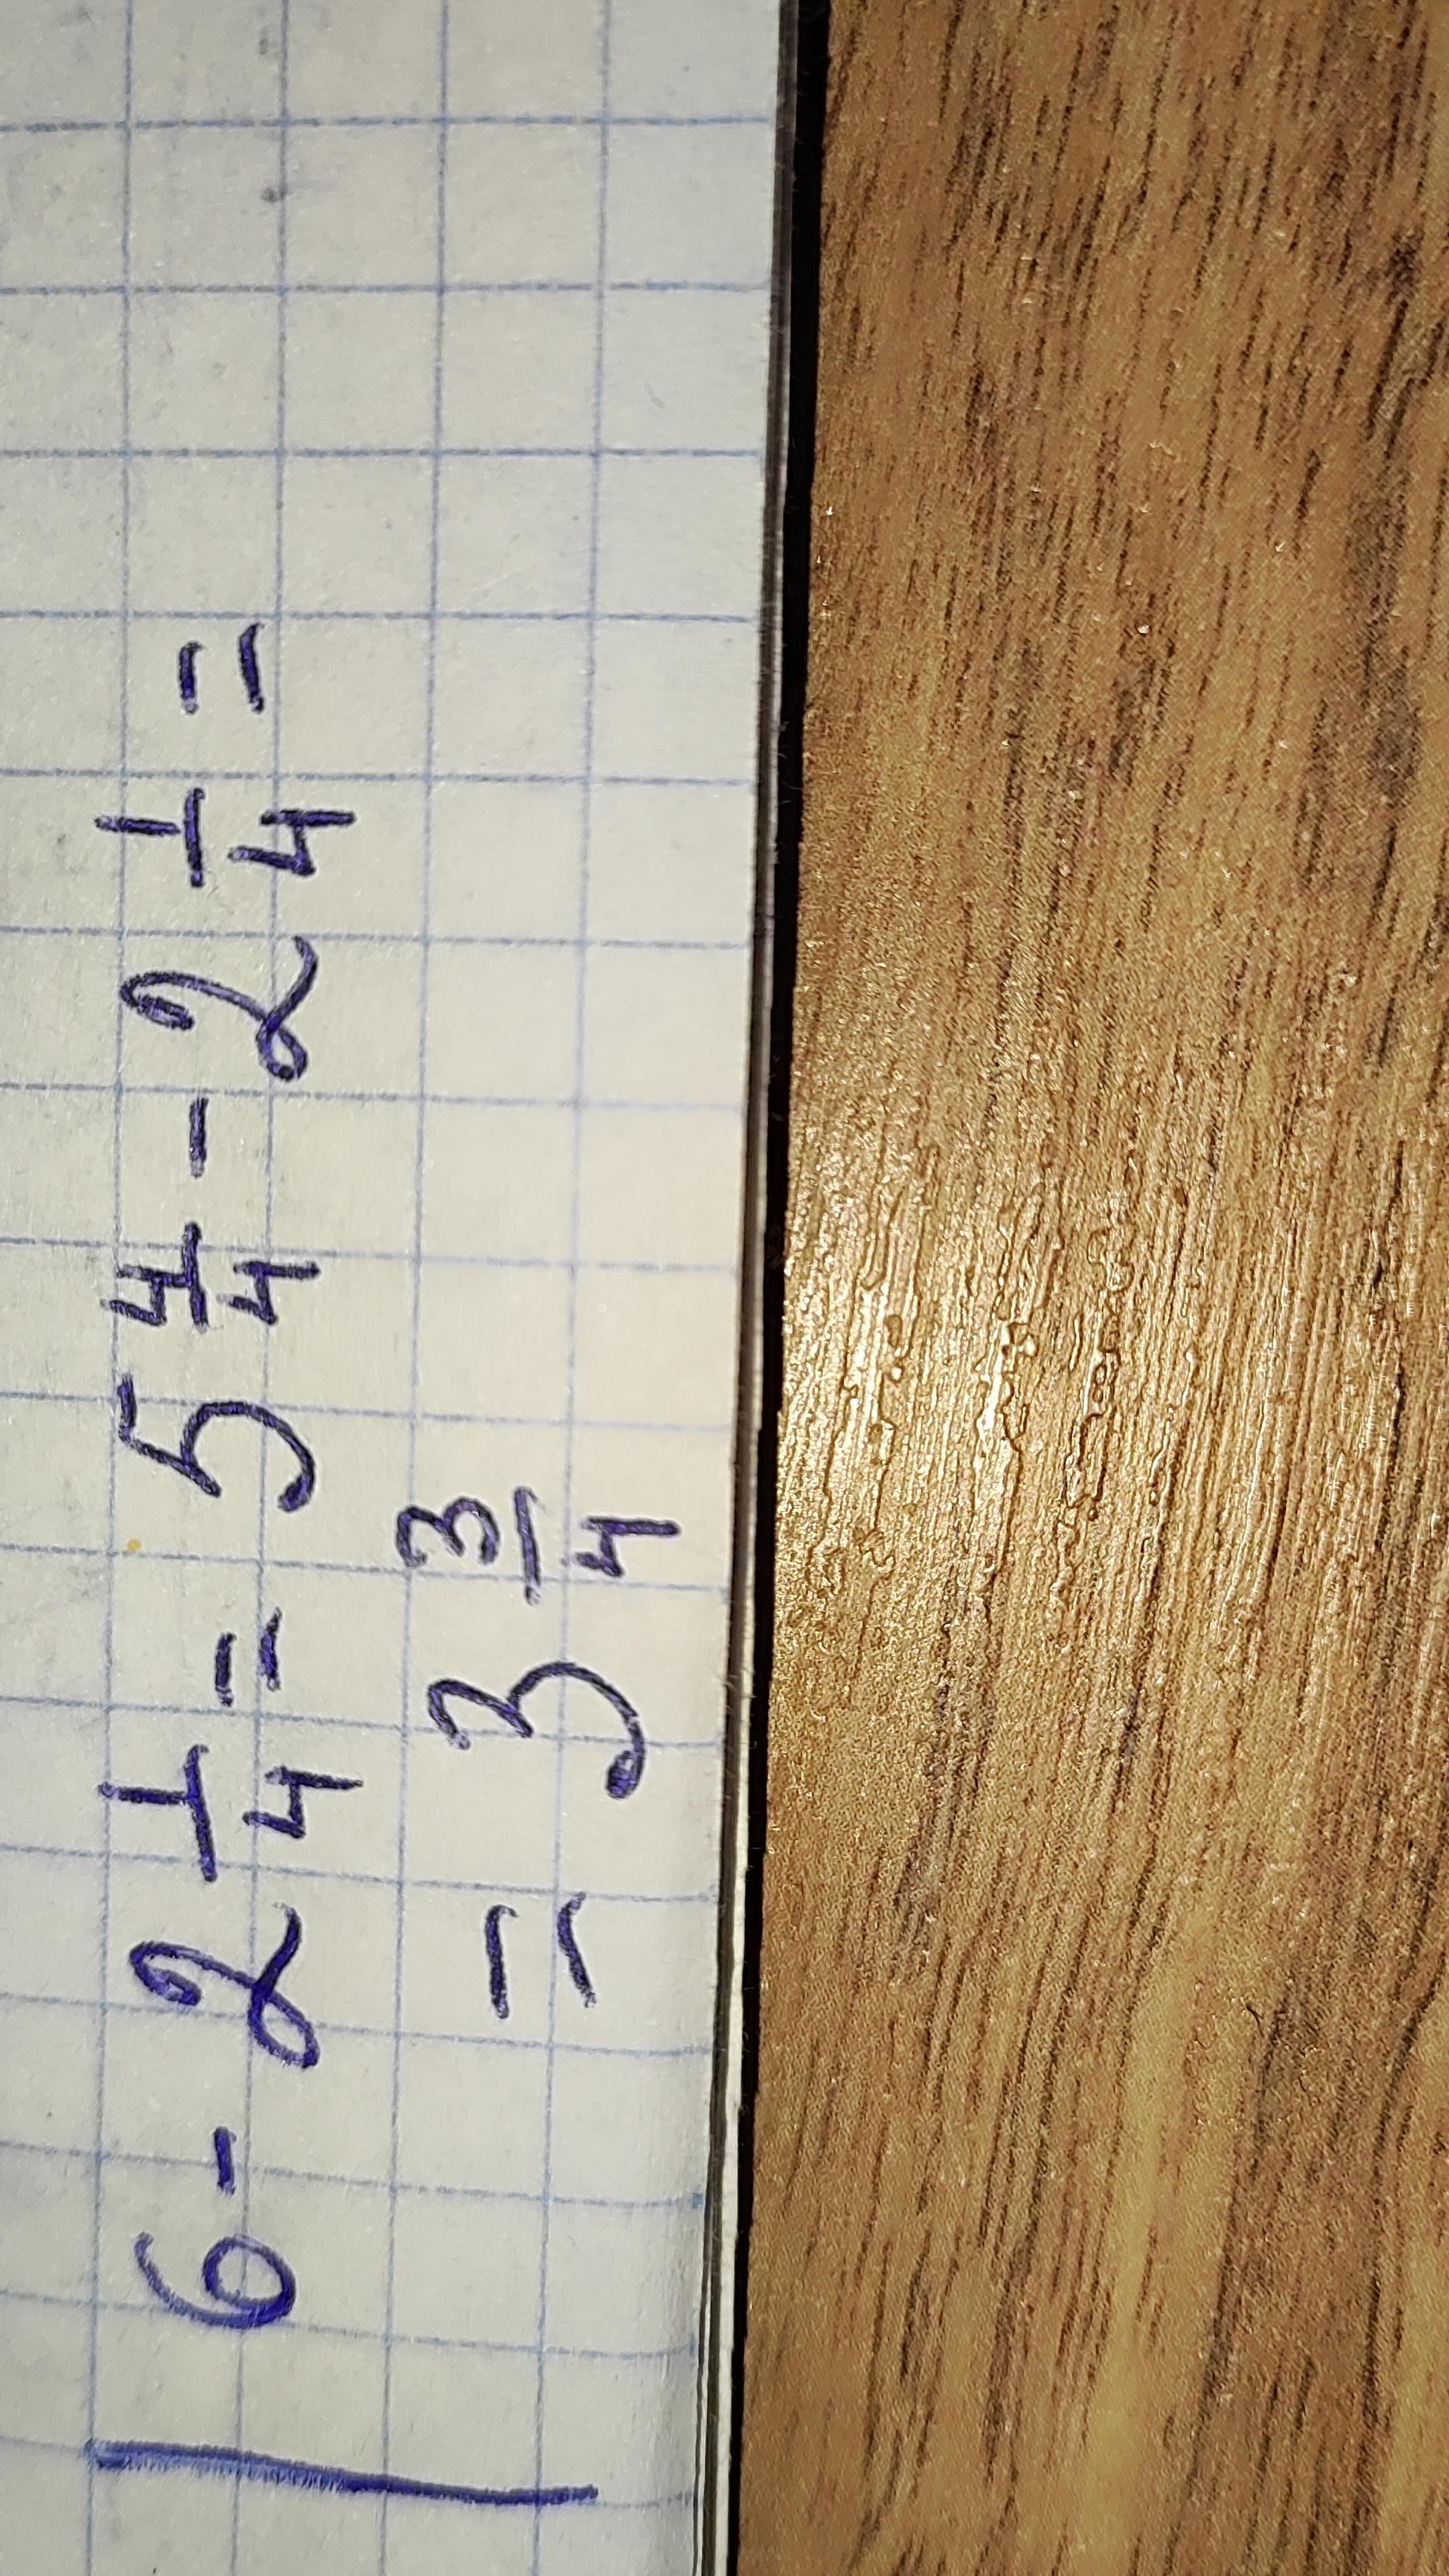 6 - 2 1/4 = 5 4/4 - 2 1/4 =
= 3 3/4